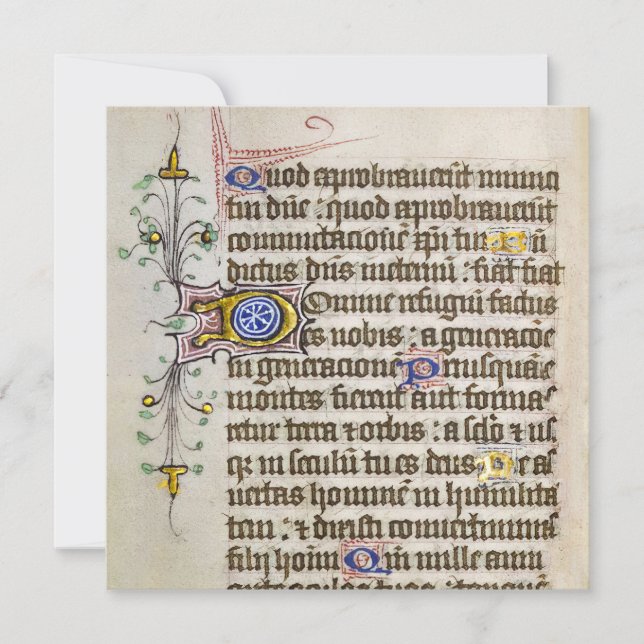 Quod exprobrauerūt inimici
tui dn̄e : quod exprobrauerūt
commutacionē xp̄i tui Bn̄
dictus dn̄s in eternū : fiat fiat
Domine refugiū factus
es nobis : a generacōe
in generacione Priusquā
montes fierent aut forma
retur terra ⁊ orbis : a sclo ⁊ us
qꝫ in seculū tu es deus Ne a
uertas hominē in humilita
tem : ⁊ dixisti conuertimini
filij hoīm Qm̄ mille anni
ante oculos tuos : tanquā